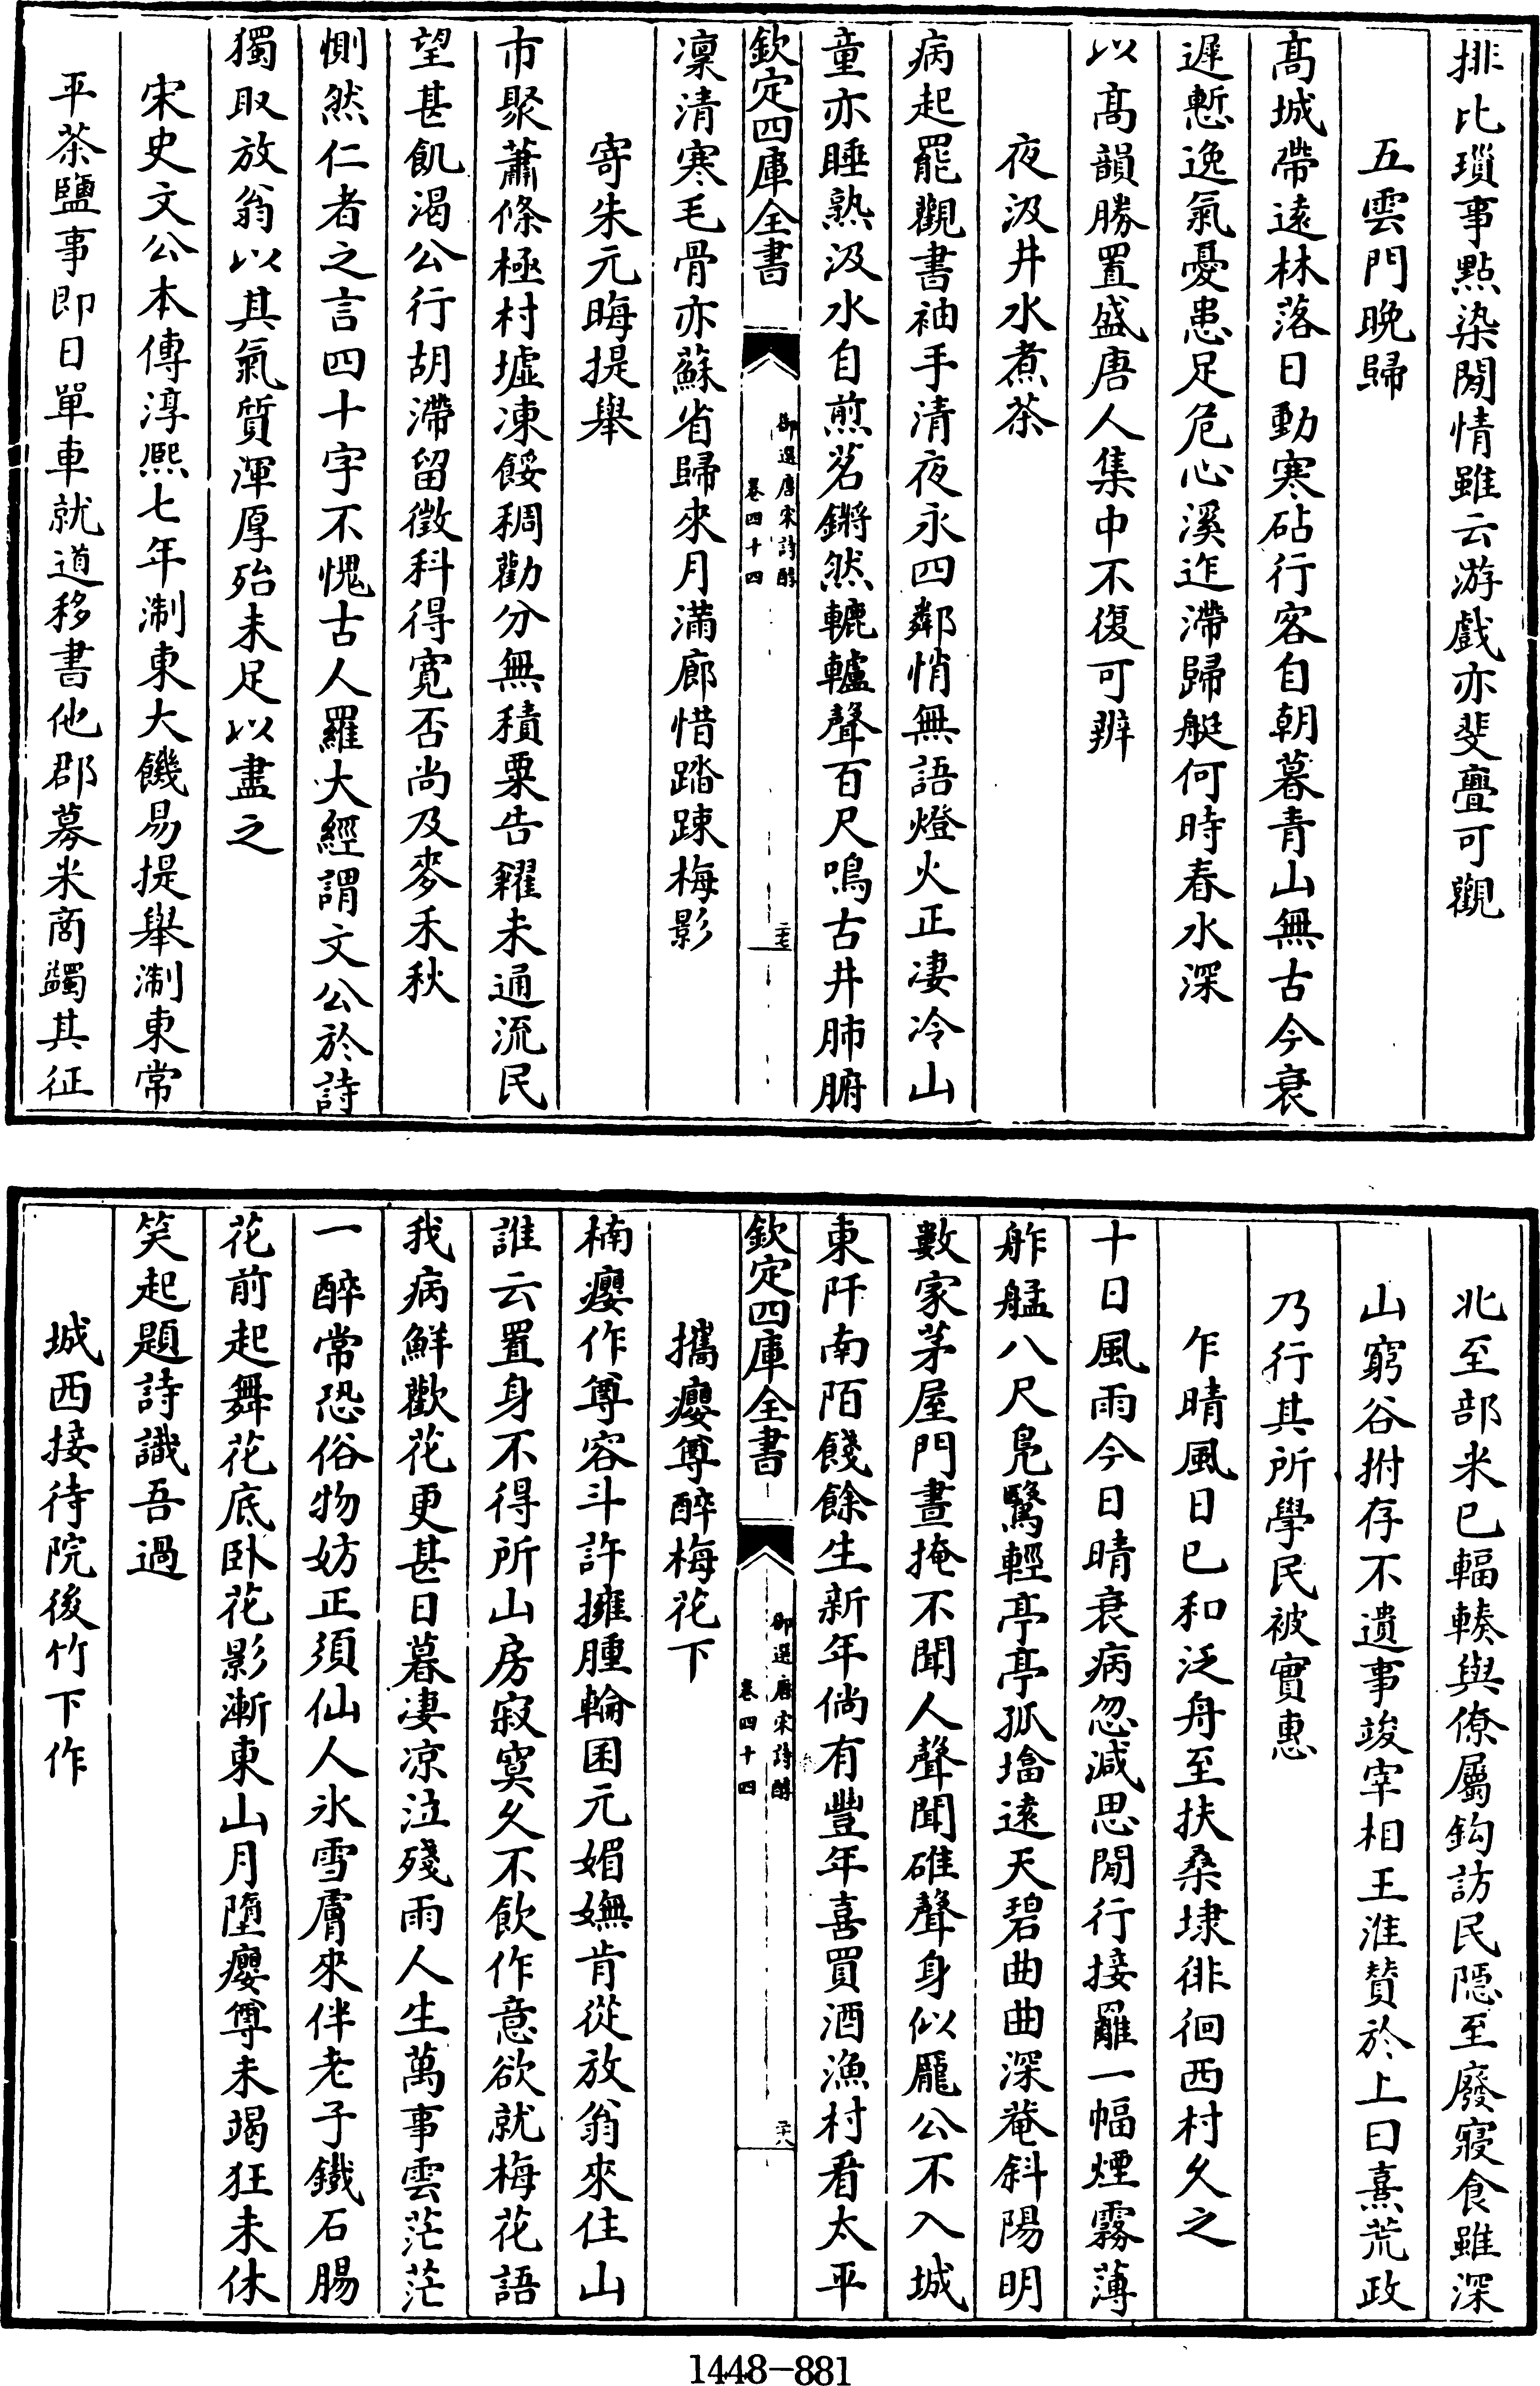 排比瑣事點染閒情雖云游戲亦斐亹可觀
五雲門晚歸
髙城帶遠林落日動寒砧行客自朝暮青山無古今衰
遲慙逸氣憂患足危心溪迮滯歸艇何時春水深
以髙韻勝置盛唐人集中不復可辨
夜汲井水煮茶
病起罷觀書袖手清夜永四鄰悄無語燈火正凄冷山
童亦睡熟汲水自煎茗鏘然轆轤聲百尺鳴古井肺腑
欽定四庫全書
御選唐宋詩醇
卷四十四
二十七
凛清寒毛骨亦蘇省歸來月滿廊惜踏疎梅影
寄朱元晦提舉
市聚蕭條極村墟凍餒稠勸分無積粟告糴未通流民
望甚飢渴公行胡滯留徵科得寬否尚及麥禾秋
惻然仁者之言四十字不愧古人羅大經謂文公於詩
獨取放翁以其氣質渾厚殆未足以盡之
宋史文公本傳淳熙七年淛東大饑易提舉淛東常
平茶鹽事即日單車就道移書他郡募米商蠲其征
北至部米已輻輳與僚屬鈎訪民隠至廢寢食雖深
山窮谷拊存不遺事竣宰相王淮贊於上曰熹荒政
乃行其所學民被實惠
乍晴風日已和泛舟至扶桑埭徘徊西村久之
十日風雨今日晴衰病忽減思閒行接䍦一幅煙霧薄
舴艋八尺鳬鷖輕亭亭孤㙮遠天碧曲曲深菴斜陽明
數家茅屋門晝掩不聞人聲聞碓聲身似龐公不入城
東阡南陌餞餘生新年倘有豐年喜買酒漁村看太平
欽定四庫全書
御選唐宋詩醇
卷四十四
二十八
攜癭尊醉梅花下
楠癭作尊容斗許擁腫輪囷元媚嫵肯從放翁來住山
誰云置身不得所山房寂寞久不飲作意欲就梅花語
我病鮮歡花更甚日暮凄凉泣殘雨人生萬事雲茫茫
一醉常恐俗物妨正須仙人氷雪膚來伴老子鐵石腸
花前起舞花底卧花影漸東山月墮癭尊未竭狂未休
笑起題詩識吾過
城西接待院後竹下作
1448-881